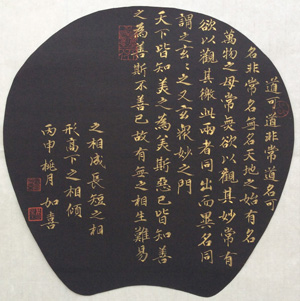 道可道非常道名可
名非常名無名天地之始有名
萬物之母常無欲以觀其妙常有
欲以觀其徼此兩者同出而異名同
謂之玄々之又玄眾妙之門
天下皆知美之為美斯惡已皆知善
之為善斯不善已故有無之相生難易
之相成長短之相
形高下之相傾
丙申桃月 如喜